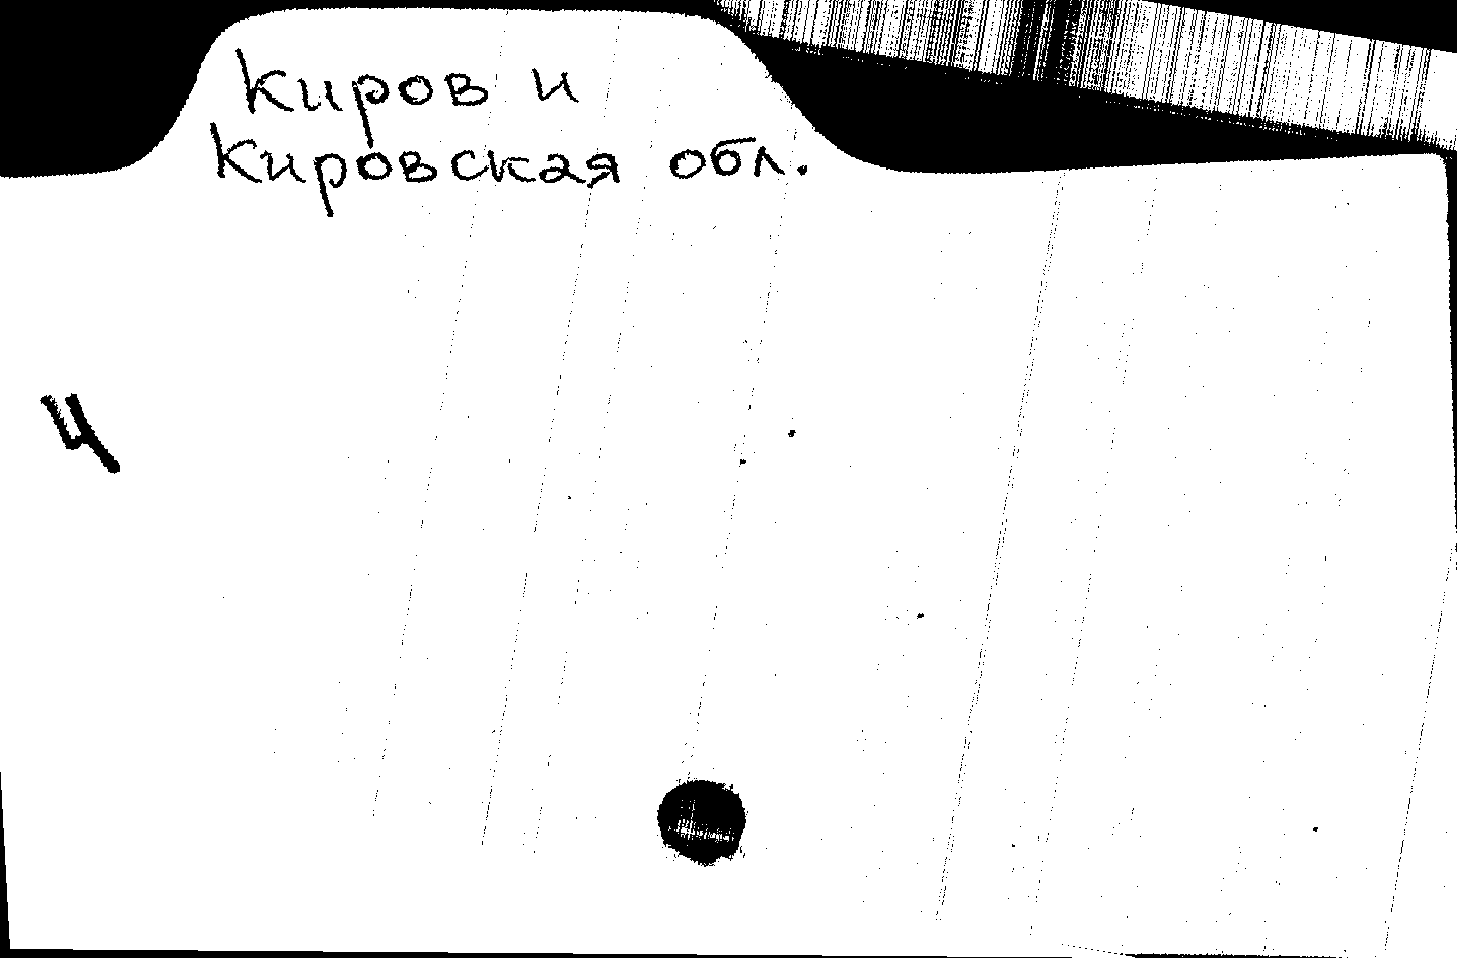 Киров и
Кировская обл.
4